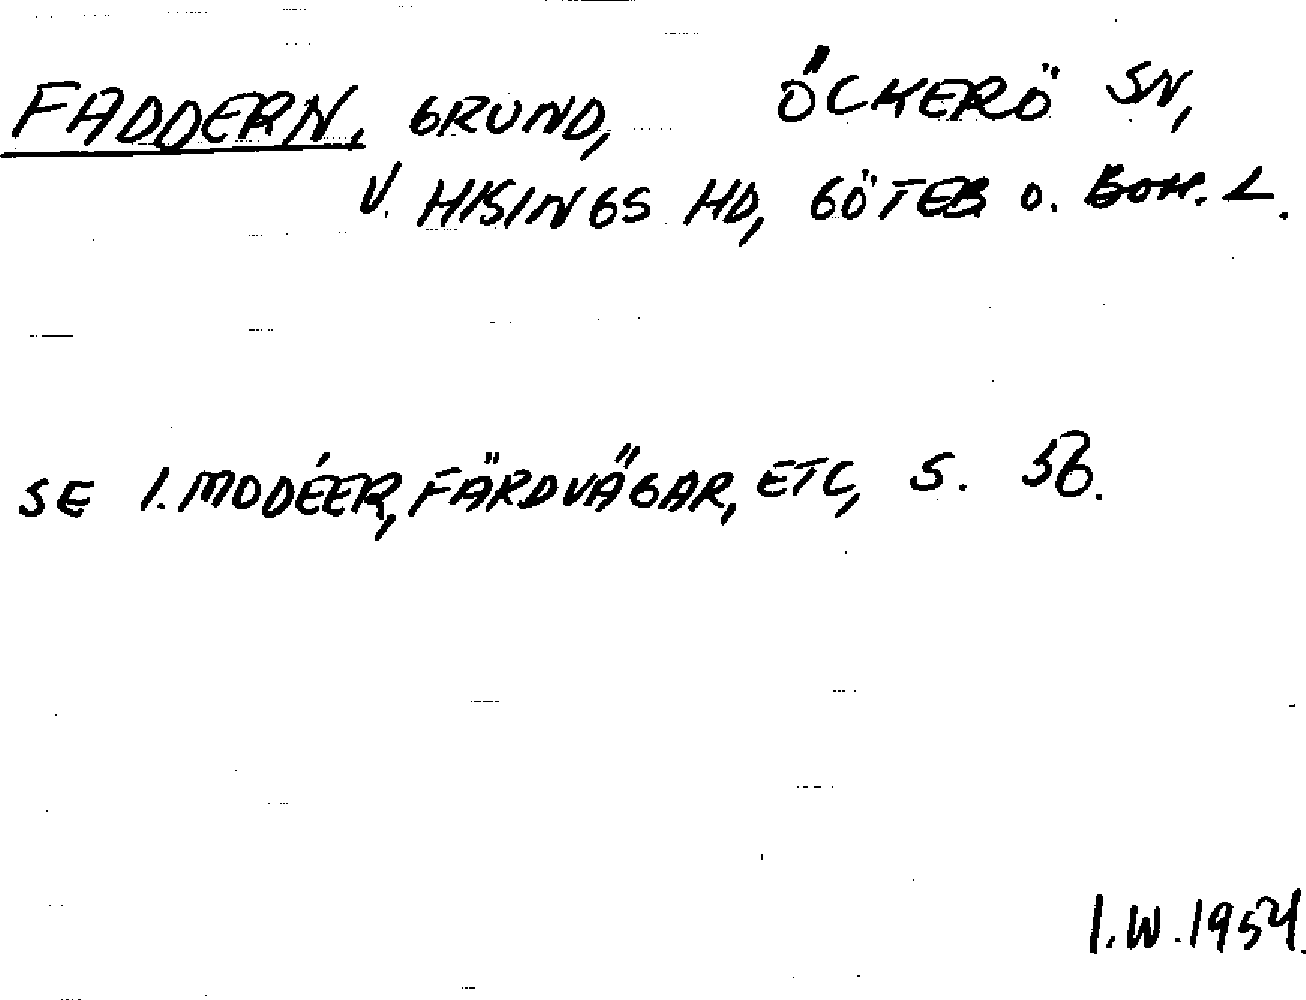 FADDERN, GRUND, ÖCKERÖ SN,
V. HISINGS HD, GÖTEB O. BOH. L.
SE I. MODÉER, FÄRDVÄGAR, ETC, S. 56.
I.W. 1954.